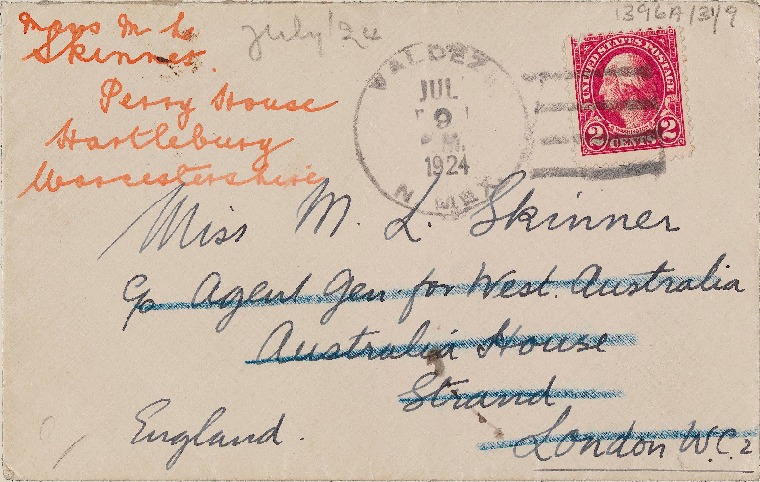 1396A/31/9
July/24
M L
Skinner
Perry House
Hartlebury
Worcestershire
VALDEZ
JUL
9
M.
1924
N MEX.
UNITED STATES POSTAGE
2 CENTS 2
Miss M. L. Skinner
c/o Agent Gen for West. Australia
Australia House
Strand
London W.C.2
England.